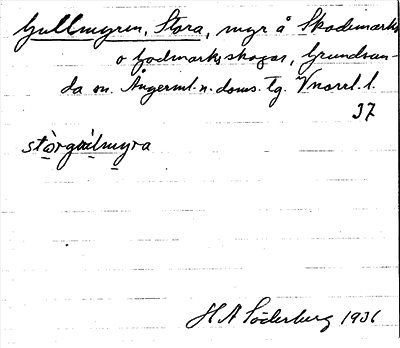 Gullmyren, Stora, myr å Skademarks
o Godmarks skogar, Grundsun-
da sn. Ångerml. n. doms. tg. Vnorrl. l.
37
stòrgúlmyra
H A Söderberg 1936